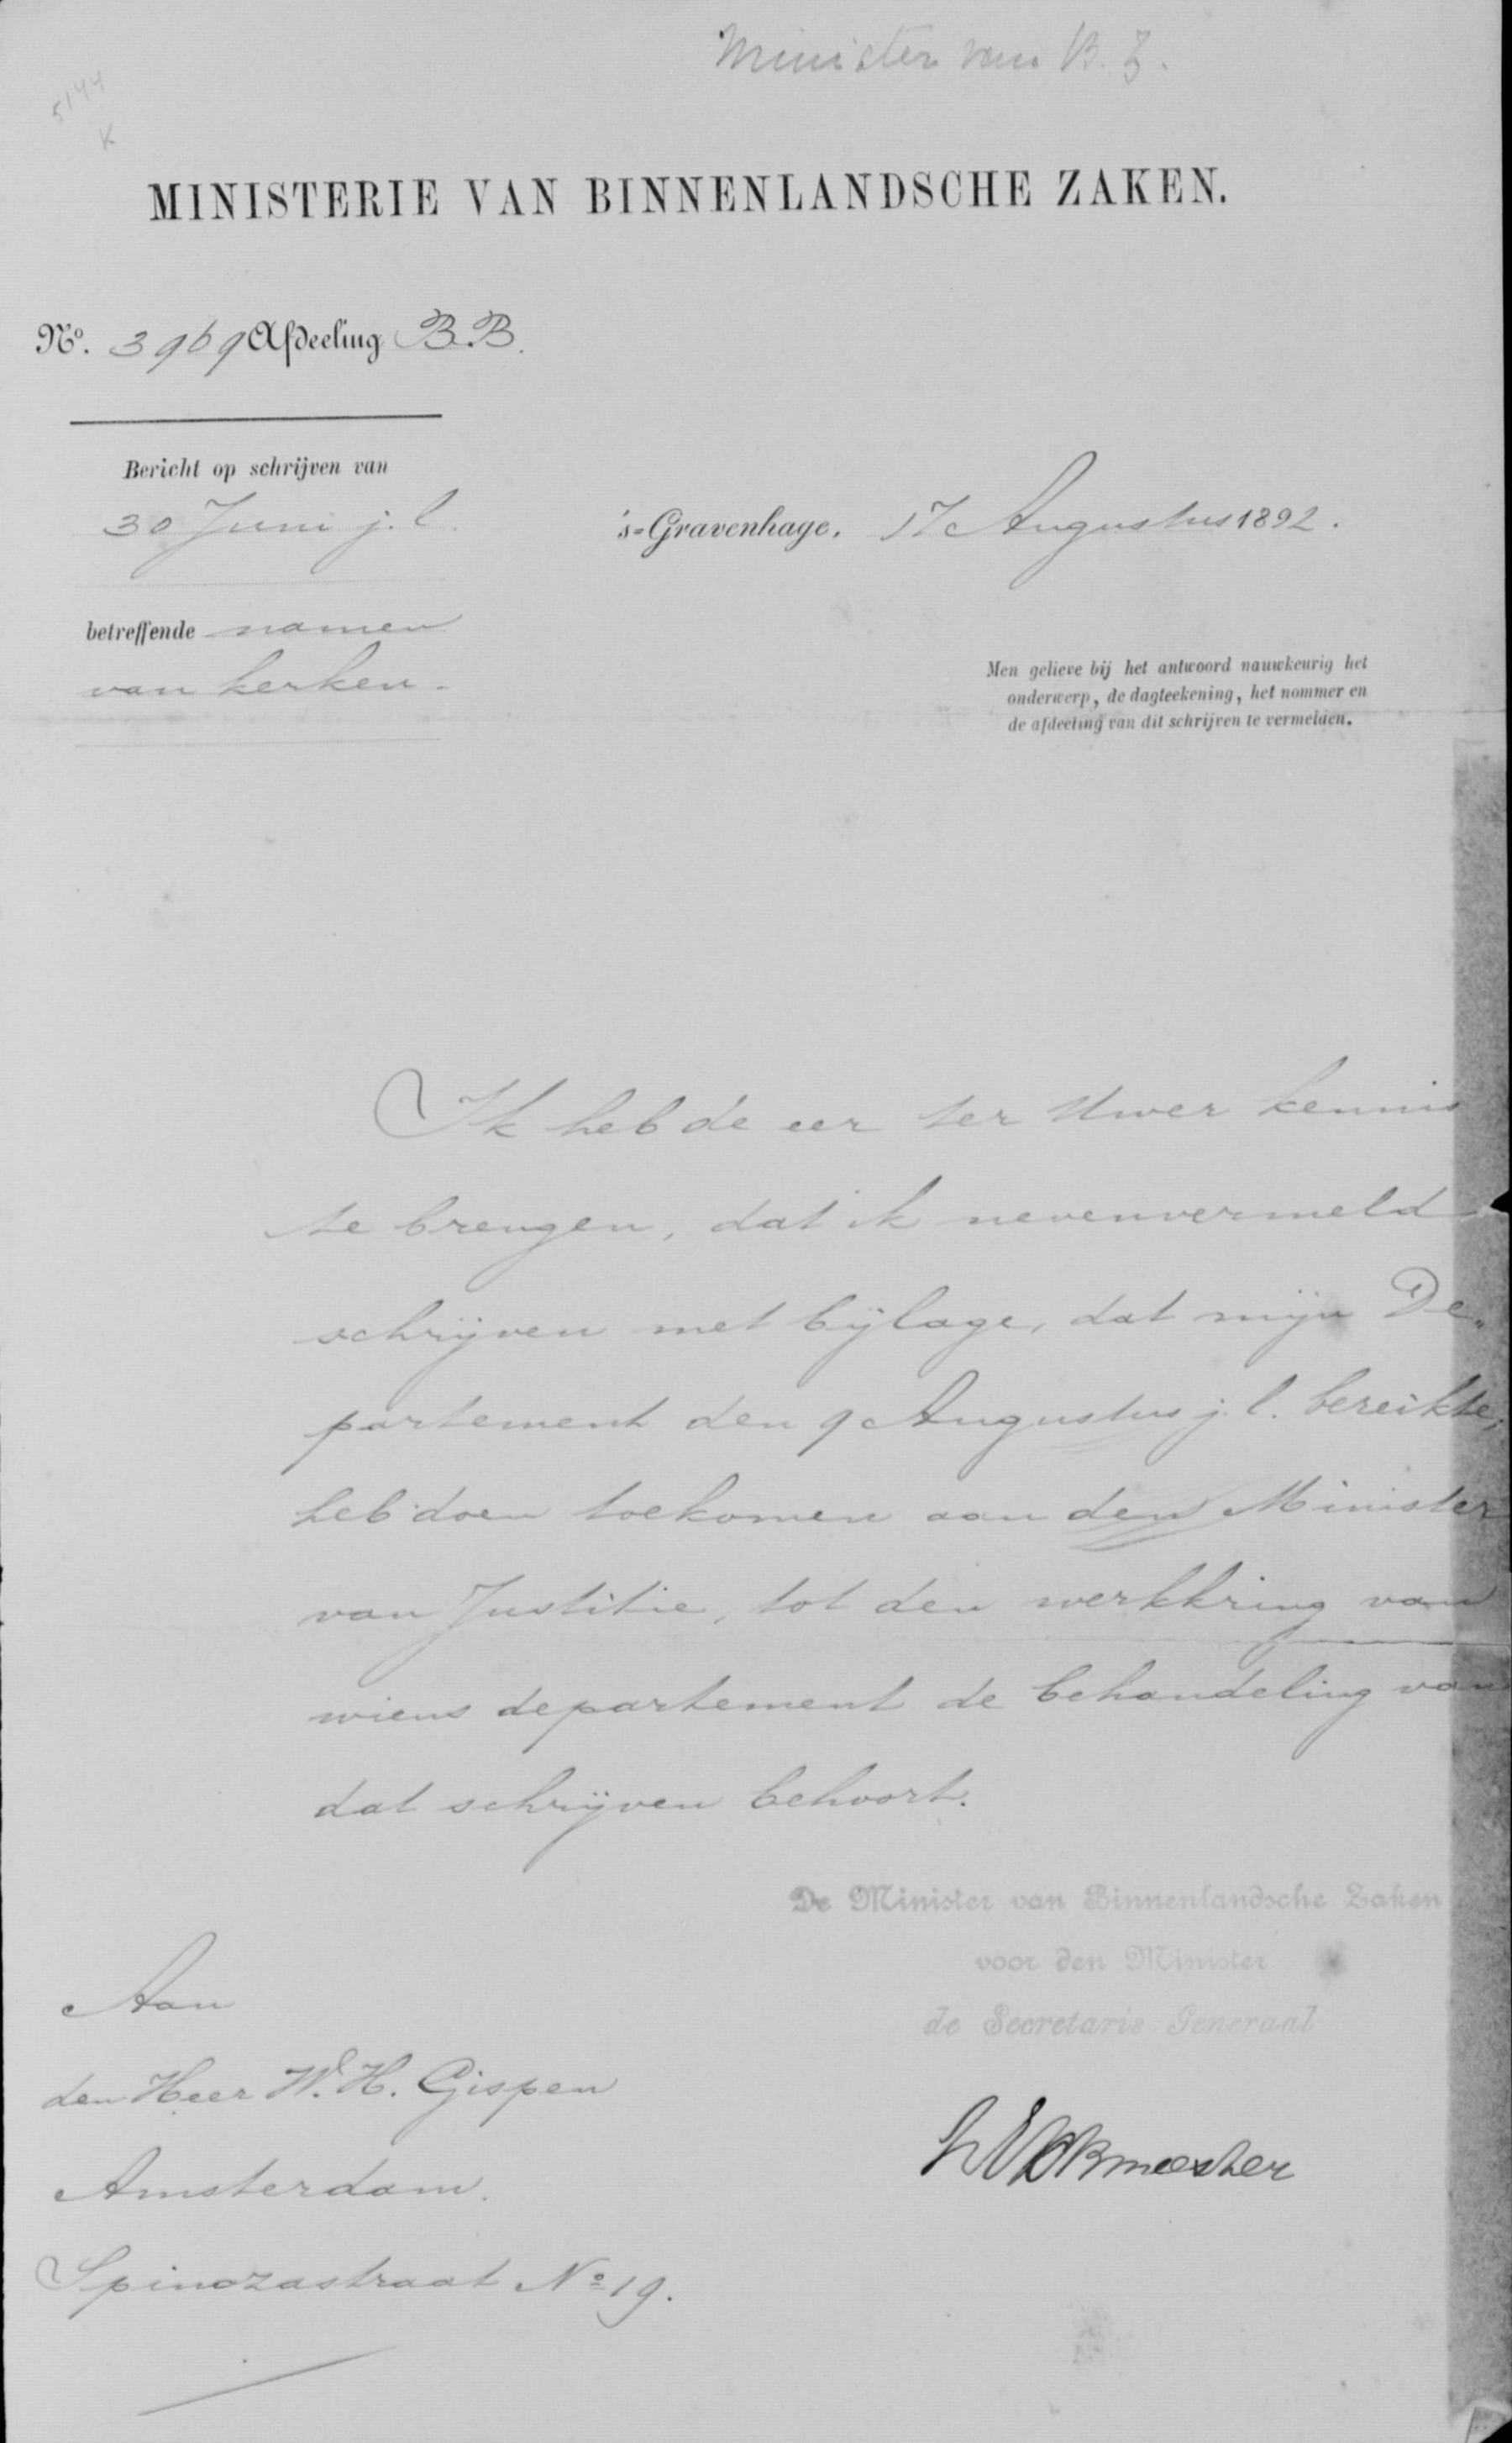 Minister van B. Z.
5144
K
MINISTERIE VAN BINNENLANDSCHE ZAKEN.
No. 3969 Afdeeling B.B.
Bericht op schrijven van
30 Juni j.l.
's-Gravenhage, 17 Augustus 1892.
betreffende namen
van kerken.
Men gelieve bij het antwoord nauwkeurig het
onderwerp, de dagteekening, het nommer en
de afdeeling van dit schrijven te vermelden.
Ik heb de eer ter Uwer kennis
te brengen, dat ik nevenvermeld
schrijven met bijlage, dat mijn De„
partement den 9 Augustus j.l. bereikte,
heb doen toekomen aan den Minister
van Justitie, tot den werkkring van
wiens departement de behandeling van
dat schrijven behoort.
De Minister van Binnenlandsche Zaken
voor den Minister
de Secretaris Generaal
Aan
den Heer W. H. Gispen
Amsterdam.
Spinozastraat No 19.